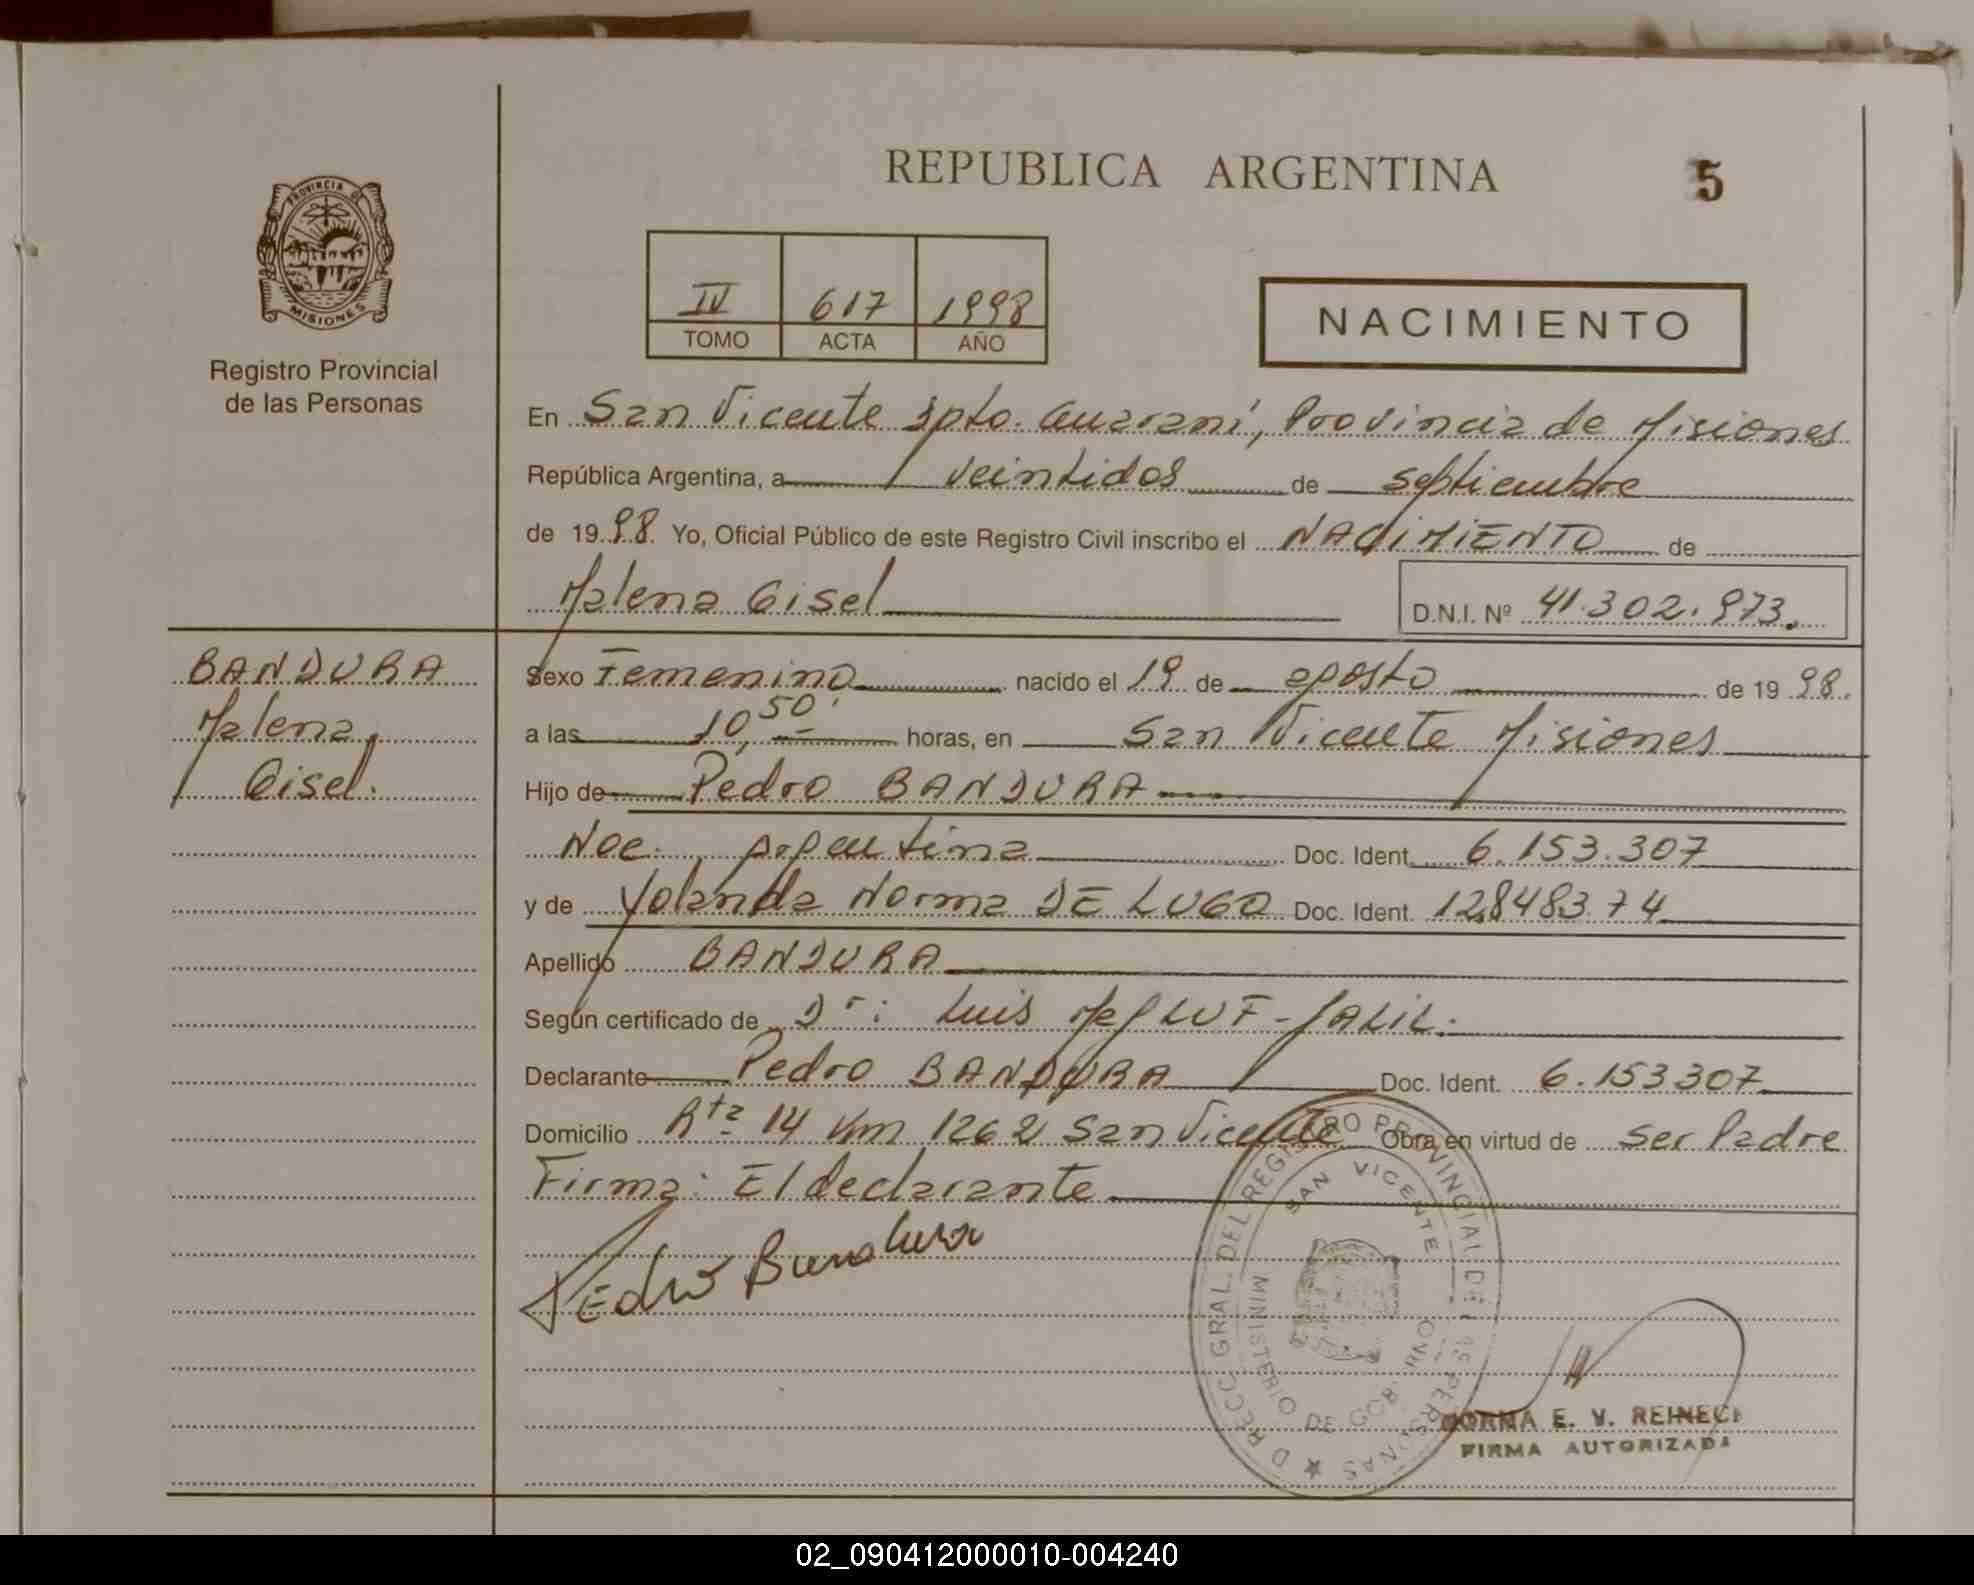 REPUBLICA ARGENTINA
5
PROVINCIA DE
MISIONES
Registro Provincial
de las Personas
IV 617 1998
TOMO ACTA AÑO
NACIMIENTO
En San Vicente Dpto. Guaraní, Provincia de Misiones
República Argentina, a veintidos de septiembre
de 1998. Yo, Oficial Público de este Registro Civil inscribo el NACIMIENTO de
Malena Gisel
D.N.I. Nº 41.302.973.
BANDURA
Malena
Gisel.
Sexo Femenino nacido el 19 de agosto de 1998.
a las 10,50' horas, en San Vicente Misiones
Hijo de Pedro BANDURA
Nac. argentina Doc. Ident. 6.153.307
y de Yolanda Norma DE LUGO Doc. Ident. 12.848374
Apellido BANDURA
Según certificado de Dr: Luis
Declarante Pedro BANDURA Doc. Ident. 6.153307
Domicilio Rta 14 Km 1262 San Vicente Obra en virtud de ser Padre
Firma: El declarante
Pedro Bandura
DIRECC. GRAL. DEL REGISTRO PROVINCIAL DE LAS PERSONAS
SAN VICENTE
MINISTERIO DE GOBIERNO
NORMA E. V.
FIRMA AUTORIZADA
02_090412000010-004240